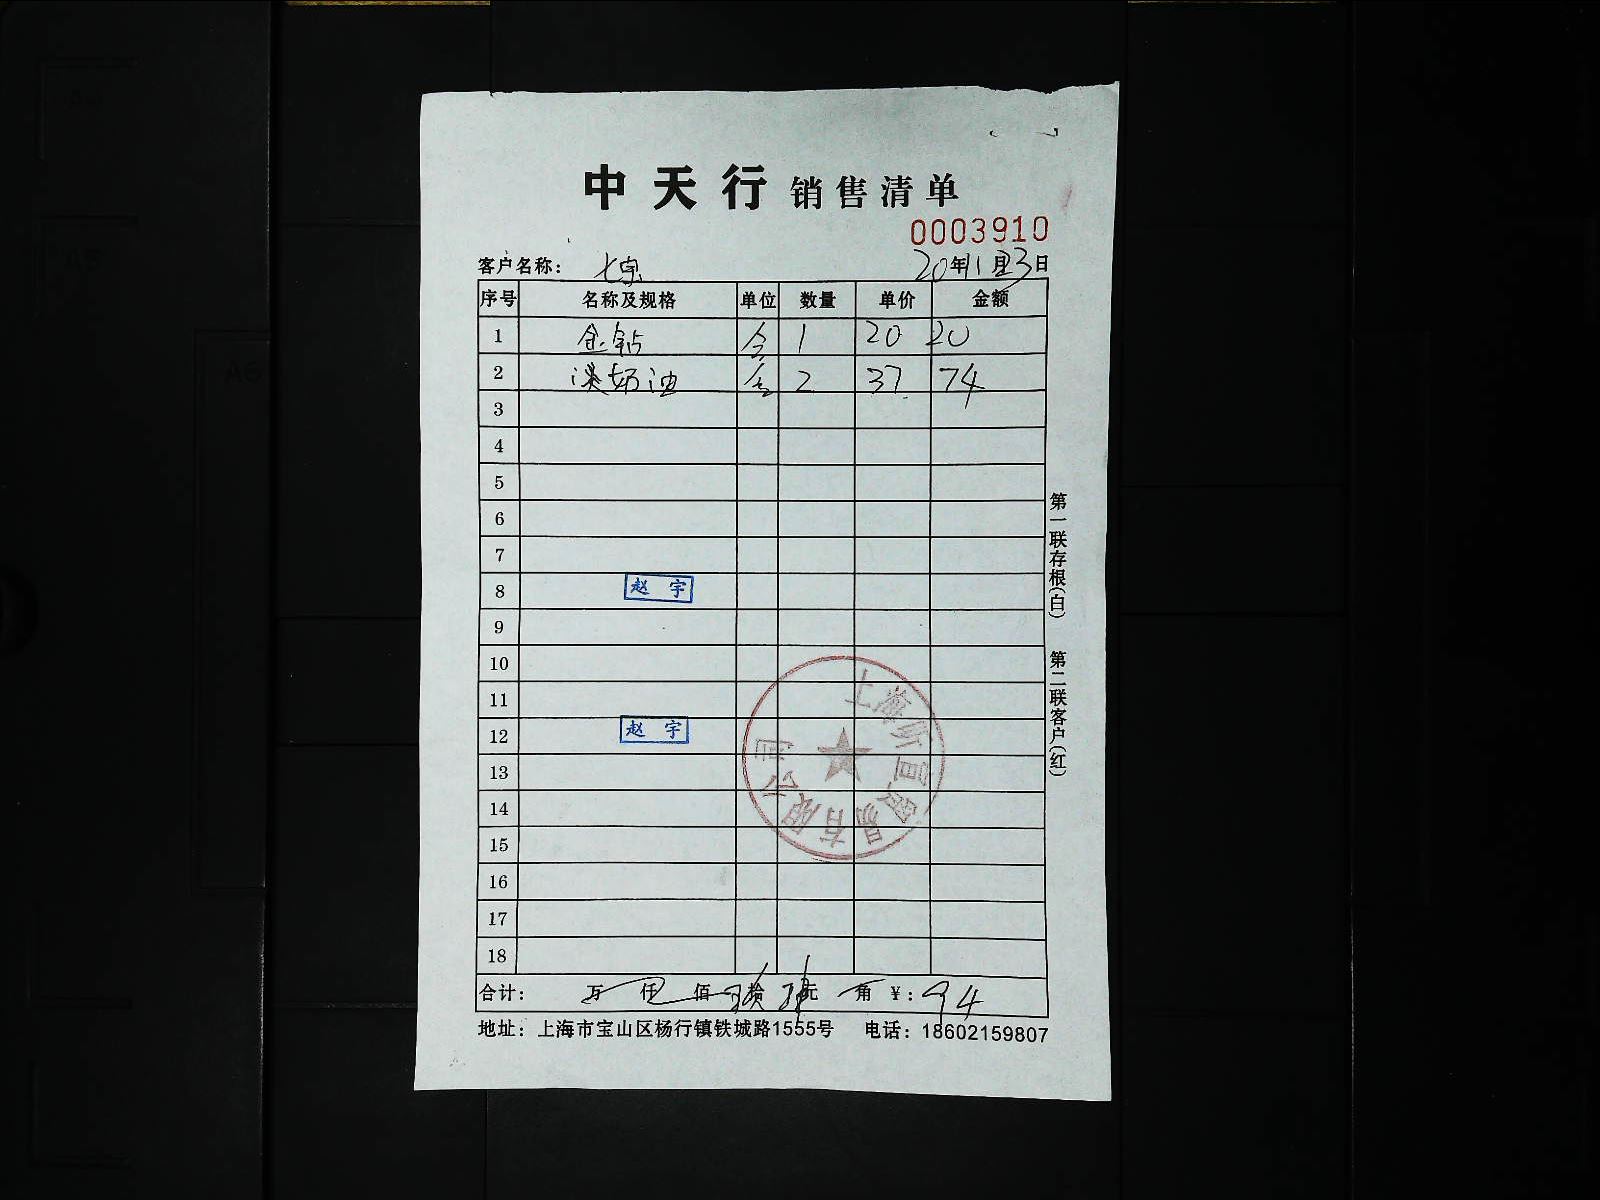 中天行 销售清单
0003910
客户名称： 七宝 20年11月23日
序号 名称及规格 单位 数量 单价 金额
1 金钻 合 1 20 20
2 淡奶油 合 2 37 74
3
4
5
6
7
8 赵 宇
9
10
11
12 赵 宇
13
14
15
16
17
18
上海 昌贸易有限公司
合计： 万 仟 佰 玖拾 肆元 角 ￥：94
地址：上海市宝山区杨行镇铁城路1555号 电话：18602159807
第一联存根(白) 第二联客户(红)